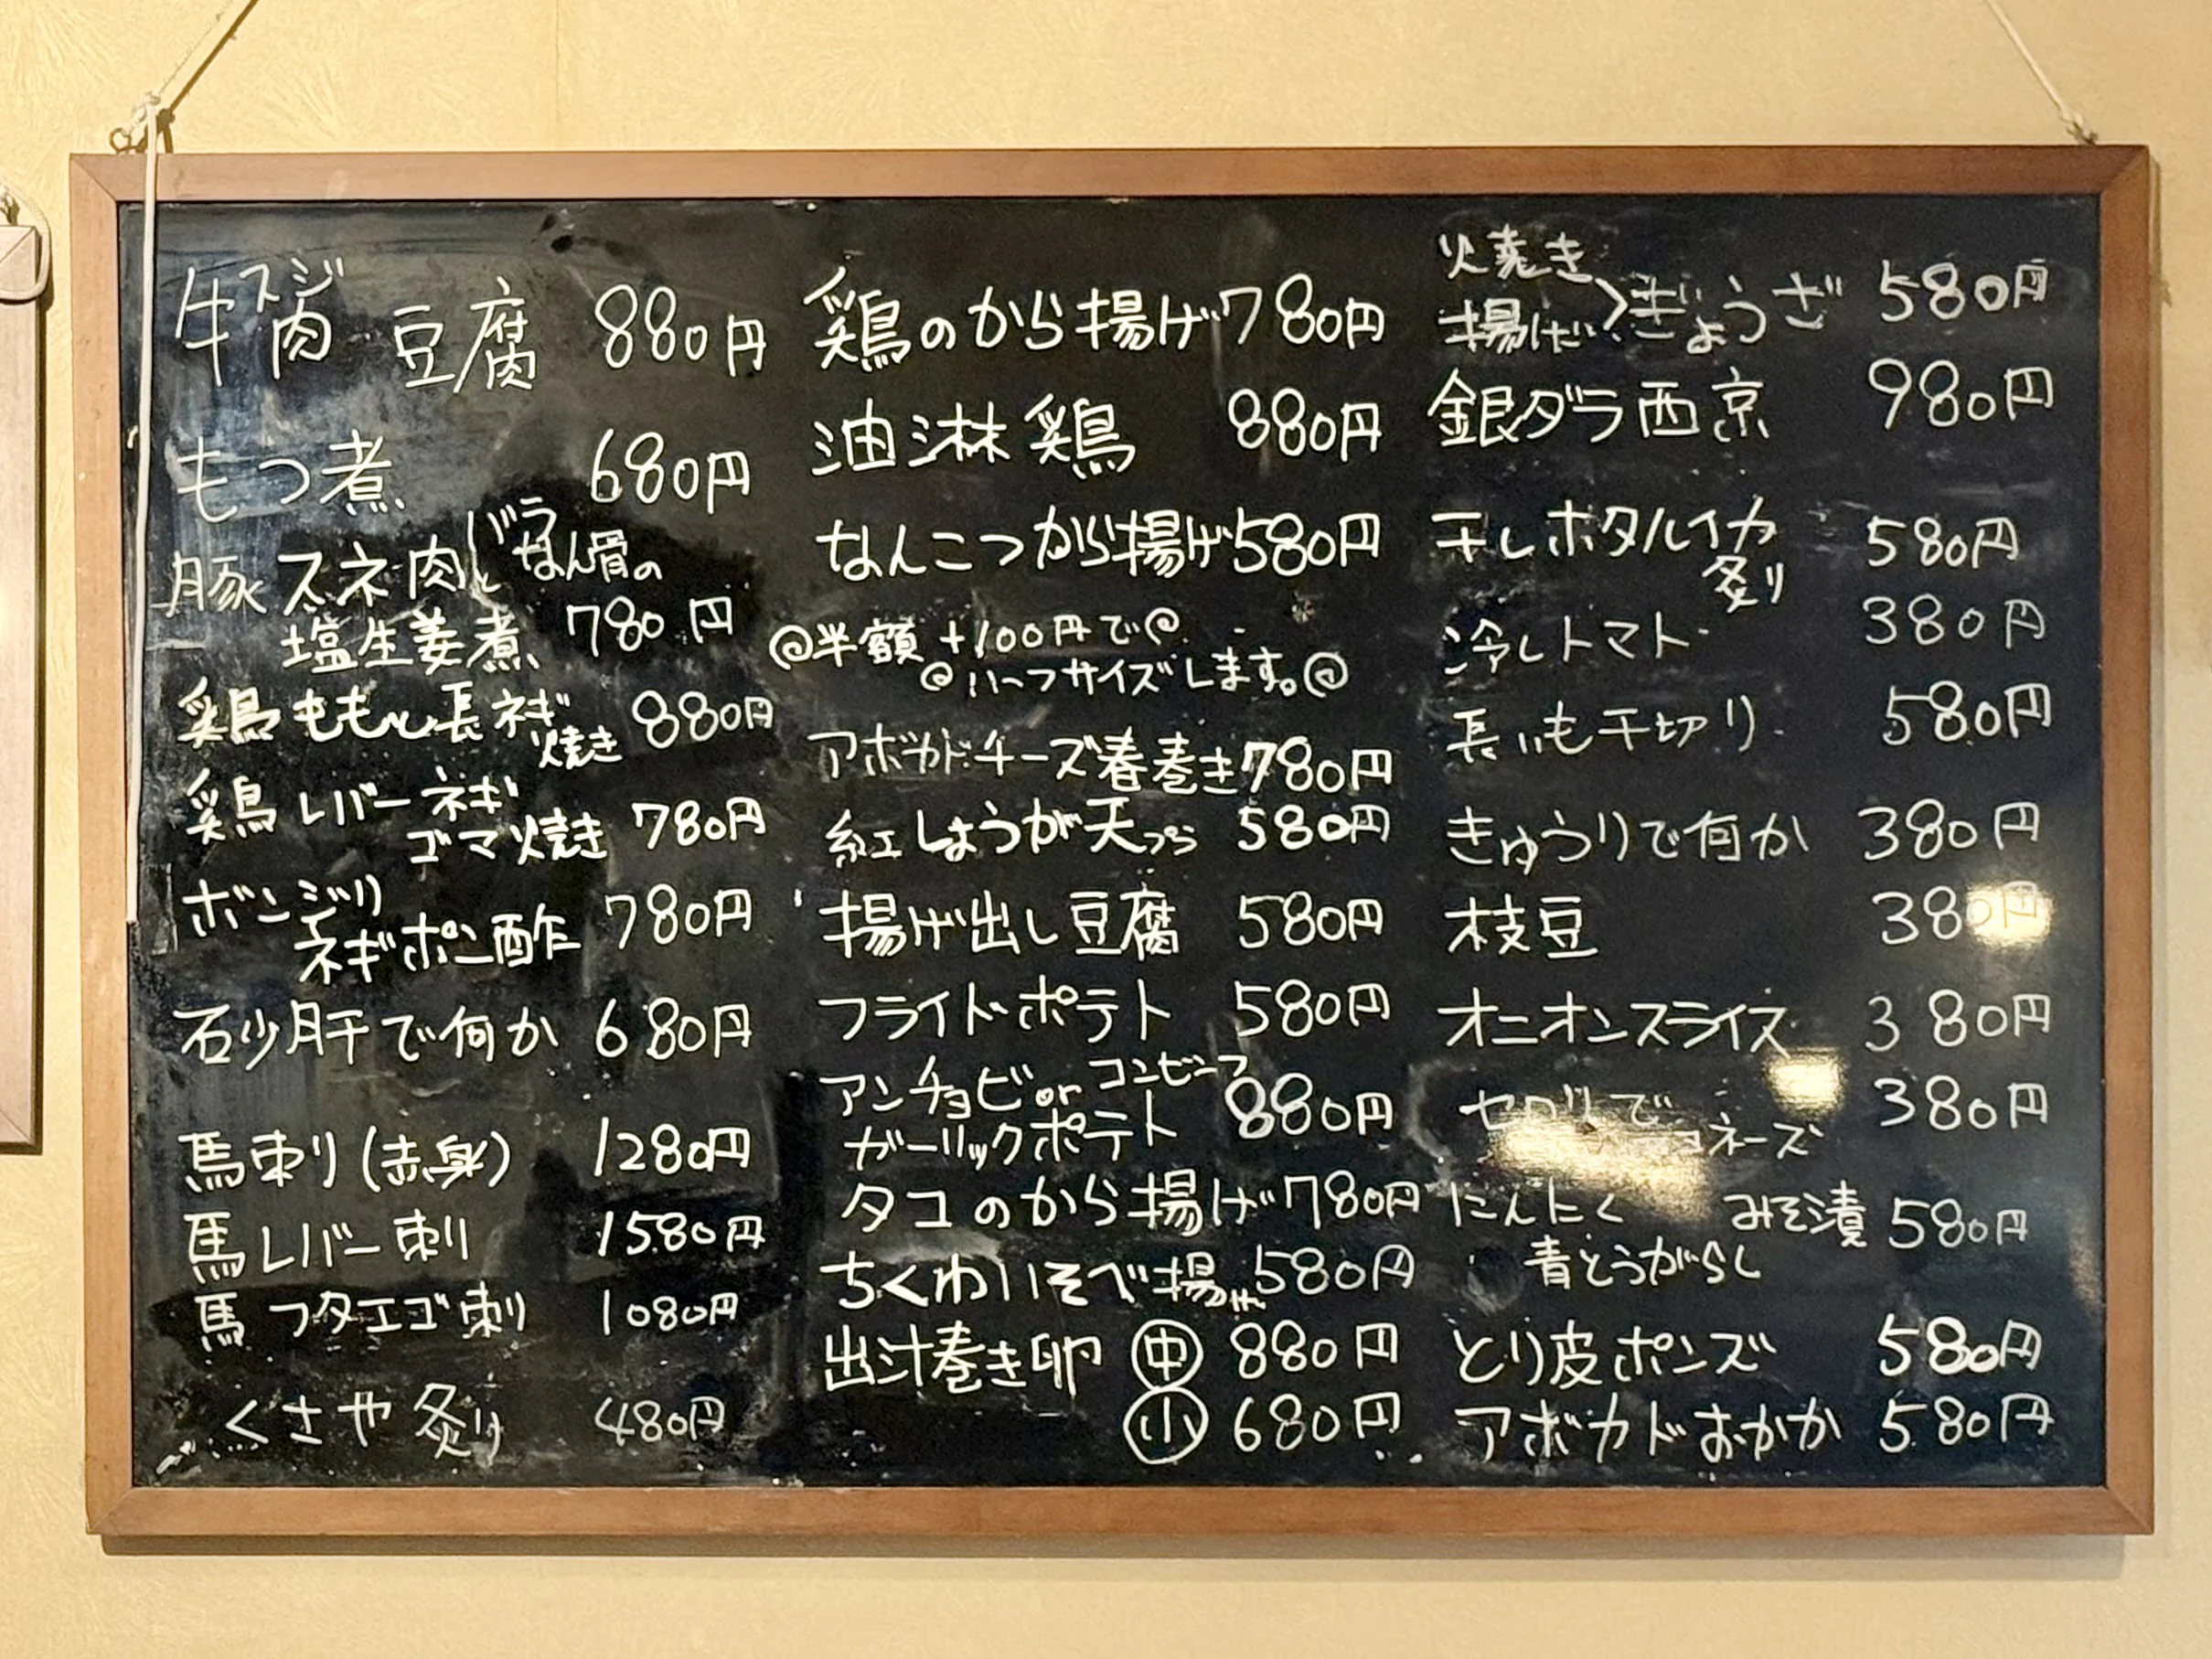 牛スジ肉豆腐 880円
もつ煮 680円
豚スネ肉とバラなん骨の
塩生姜煮 780円
鶏ももと長ネギ
焼き 880円
鶏レバーネギ
ゴマ焼き 780円
ボンジリ
ネギポン酢 780円
砂肝で何か 680円
馬刺り(赤身) 1280円
馬レバー刺 1580円
馬フタエゴ刺 1080円
くさや炙り 480円
鶏のから揚げ 780円
油淋鶏 880円
なんこつから揚げ 580円
@半額+100円で@
@ハーフサイズします。@
アボカドチーズ春巻き 780円
紅しょうが天ぷら 580円
揚げ出し豆腐 580円
フライドポテト 580円
アンチョビorコンビーフ
ガーリックポテト 880円
タコのから揚げ 780円
ちくわいそべ揚げ 580円
出汁巻き卵 中 880円
小 680円
焼き
揚げ>ぎょうざ 580円
銀ダラ西京 980円
干しホタルイカ
炙り 580円
冷しトマト 380円
長いも千切り 580円
きゅうりで何か 380円
枝豆 380円
オニオンスライス 380円
セロリで
ネーズ 380円
にんにく みそ漬 580円
青とうがらし
とり皮ポンズ 580円
アボカドおかか 580円